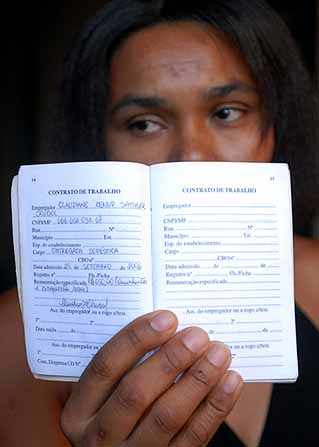 14
CONTRATO DE TRABALHO
Empregador CLAUDIANE
CNPJ/MF
Rua Nº
Município Est.
Esp. do estabelecimento
Cargo EMPREGADA DOMÉSTICA
CBO nº
Data admissão 25 de SETEMBRO de 2006
Registro nº Fls./Ficha
Remuneração especificada
Ass. do empregador ou a rogo c/test.
1ª 2ª
Data saída de de
Ass. do empregador
1ª
Com. Dispensa CD Nº
15
CONTRATO DE TRABALHO
Empregador
CNPJ/MF
Rua Nº
Município Est.
Esp. do estabelecimento
Cargo
CBO nº
Data admissão de de
Registro nº Fls./Ficha
Remuneração especificada
Ass. do empregador ou a rogo c/test.
1ª 2ª
de de
Ass. do empregador ou a rogo c/test.
2ª